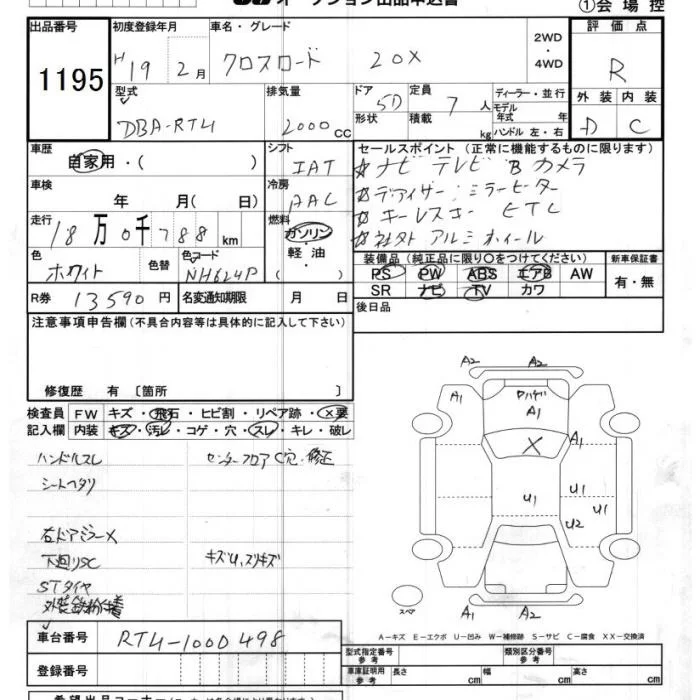 オークション出品申込書
①会場控
出品番号 初度登録年月 車名・グレード 評価点
1195 H19 2月 クロスロード 20X 2WD・4WD R
型式 排気量 ドア 定員 ディーラー・並行 外装 内装
DBA-RT4 2000cc 5D 7人 モデル年式 年 D C
形状 積載 kg ハンドル 左・右
車歴 シフト セールスポイント (正常に機能するものに限ります)
自家用・( ) IAT ☆ナビ テレビ Bカメラ
車検 冷房 ☆デアイサー ミラーヒーター
年 月( 日) AAC ☆キーレスキー ETC
走行 燃料 ☆社外 アルミホイール
18万0千788km ガソリン・軽油・( )
色 色替 色コード 装備品 (純正品に限り○をつけてください) 新車保証書
ホワイト NH624P PS PW ABS エアB AW 有・無
SR ナビ TV カワ
R券 13590円 名変通知期限 月 日 後日品
注意事項申告欄 (不具合内容等は具体的に記入して下さい)
修復歴 有 〔箇所 〕
検査員 FW キズ・飛石・ヒビ割・リペア跡・X要
記入欄 内装 キズ・汚レ・コゲ・穴・スレ・キレ・破レ
ハンドルスレ センターフロアC穴・修正
シートヘタリ
右ドアミラーX
下回りSC キズU,スリキズ
STタイヤ
外装鉄粉付着
A2 A2
A1 A1
A1
X
U1 U1
U1
U2
スペア A1 A2
A-キズ E-エクボ U-凹み W-補修跡 S-サビ C-腐食 XX-交換済
車台番号 RT4-1000498
登録番号
型式指定番号 参考 類別区分番号 参考
車庫証明用 参考 長さ cm 幅 cm 高さ cm